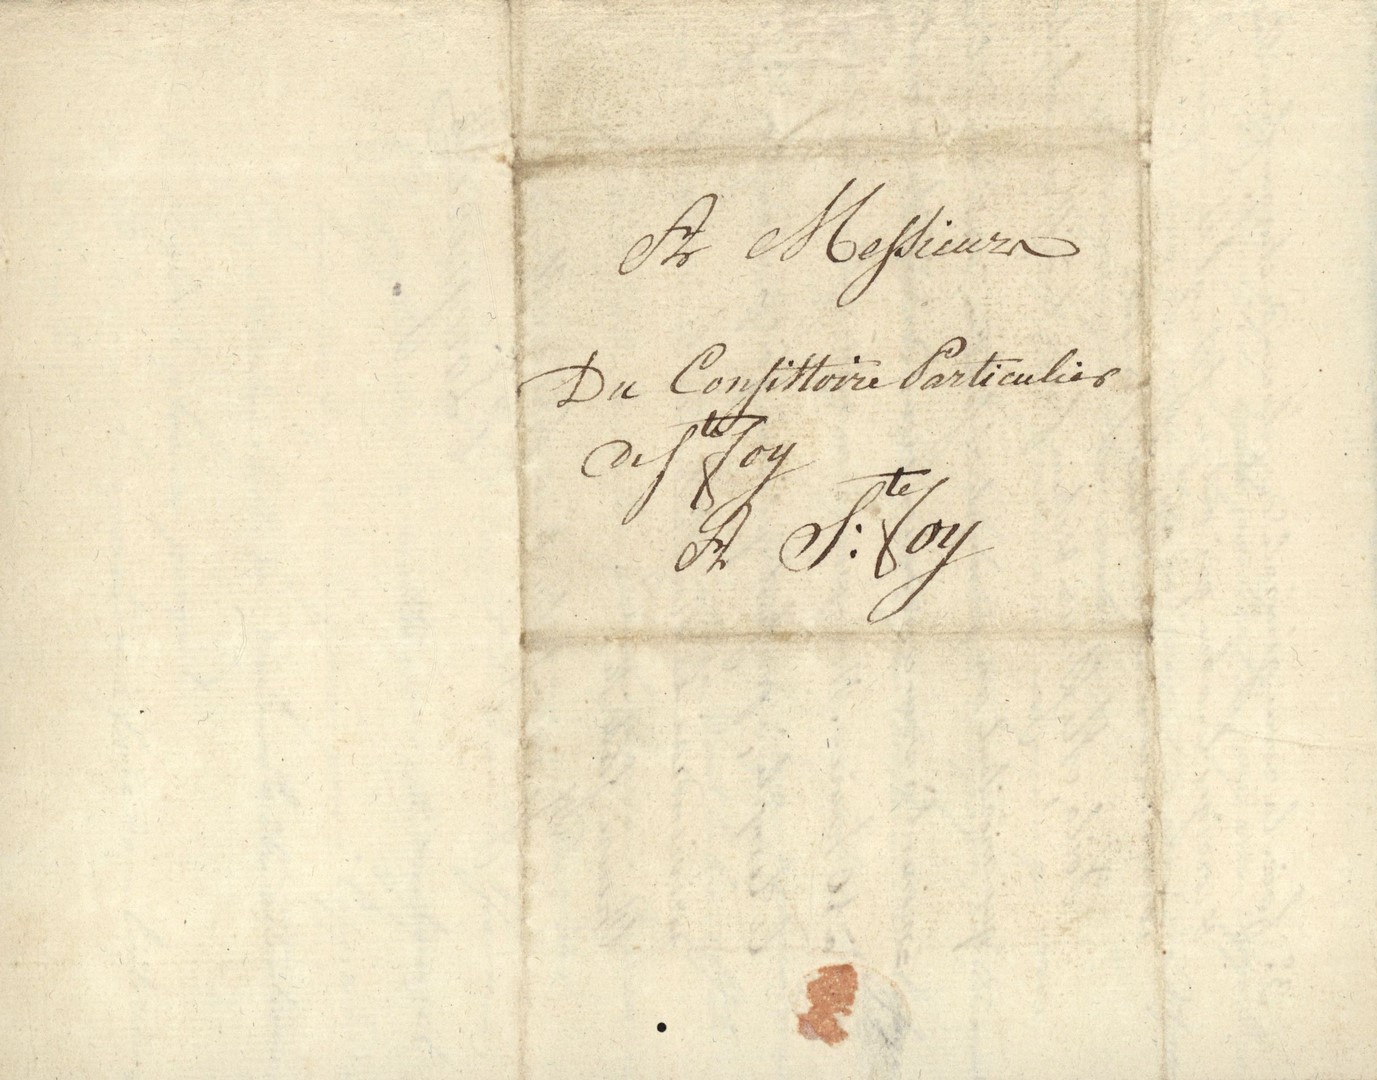 A Messieurs
Du Consistoire Particulier
de Ste Foy
A S:te Foy